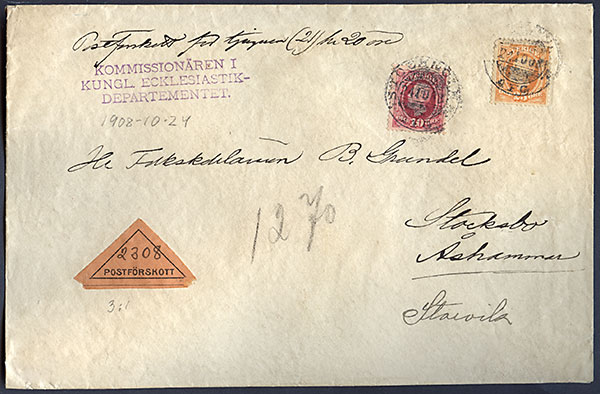 Postförskott för tjugeen (21) kr 20 öre
KOMMISSIONÄREN I
KUNGL. ECKLESIASTIK-
DEPARTEMENTET.
1908-10-24
10
Hr Folkskolläraren B. Grundel
1270
Stocksbo
Åshammar
Storvik
2308
POSTFÖRSKOTT
3:1